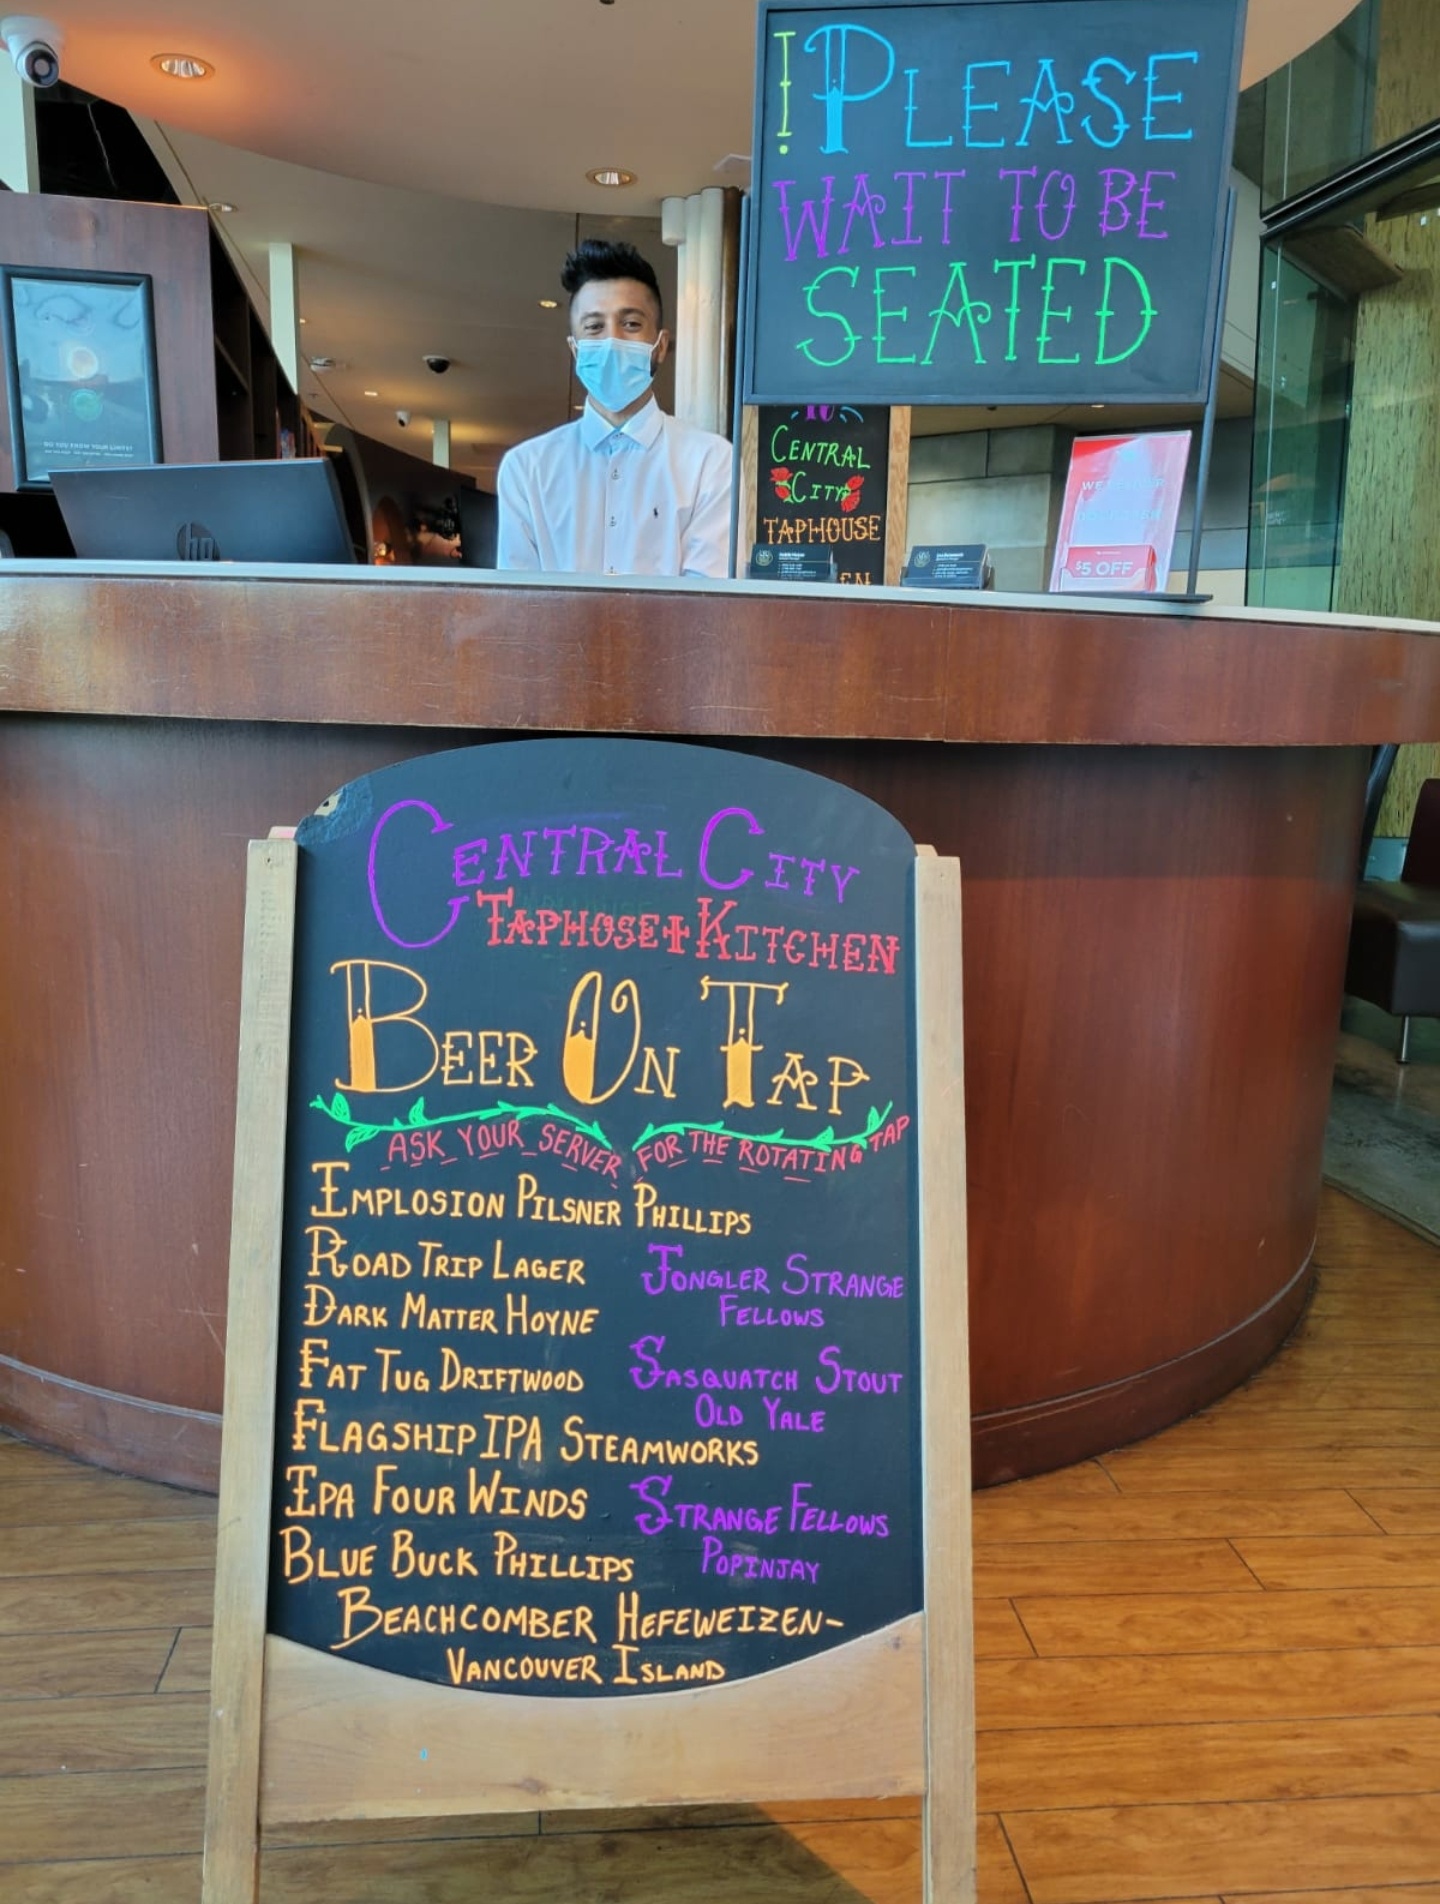 ! PLEASE
WAIT TO BE
SEATED
TO
CENTRAL
CITY
TAPHOUSE
EN
DO YOU KNOW YOUR LIMITS?
hp
$5 OFF
CENTRAL CITY
TAPHOSE + KITCHEN
BEER ON TAP
ASK YOUR SERVER FOR THE ROTATING TAP
IMPLOSION PILSNER PHILLIPS
ROAD TRIP LAGER
DARK MATTER HOYNE
FAT TUG DRIFTWOOD
FLAGSHIP IPA STEAMWORKS
IPA FOUR WINDS
BLUE BUCK PHILLIPS
JONGLER STRANGE
FELLOWS
SASQUATCH STOUT
OLD YALE
STRANGE FELLOWS
POPINJAY
BEACHCOMBER HEFEWEIZEN-
VANCOUVER ISLAND